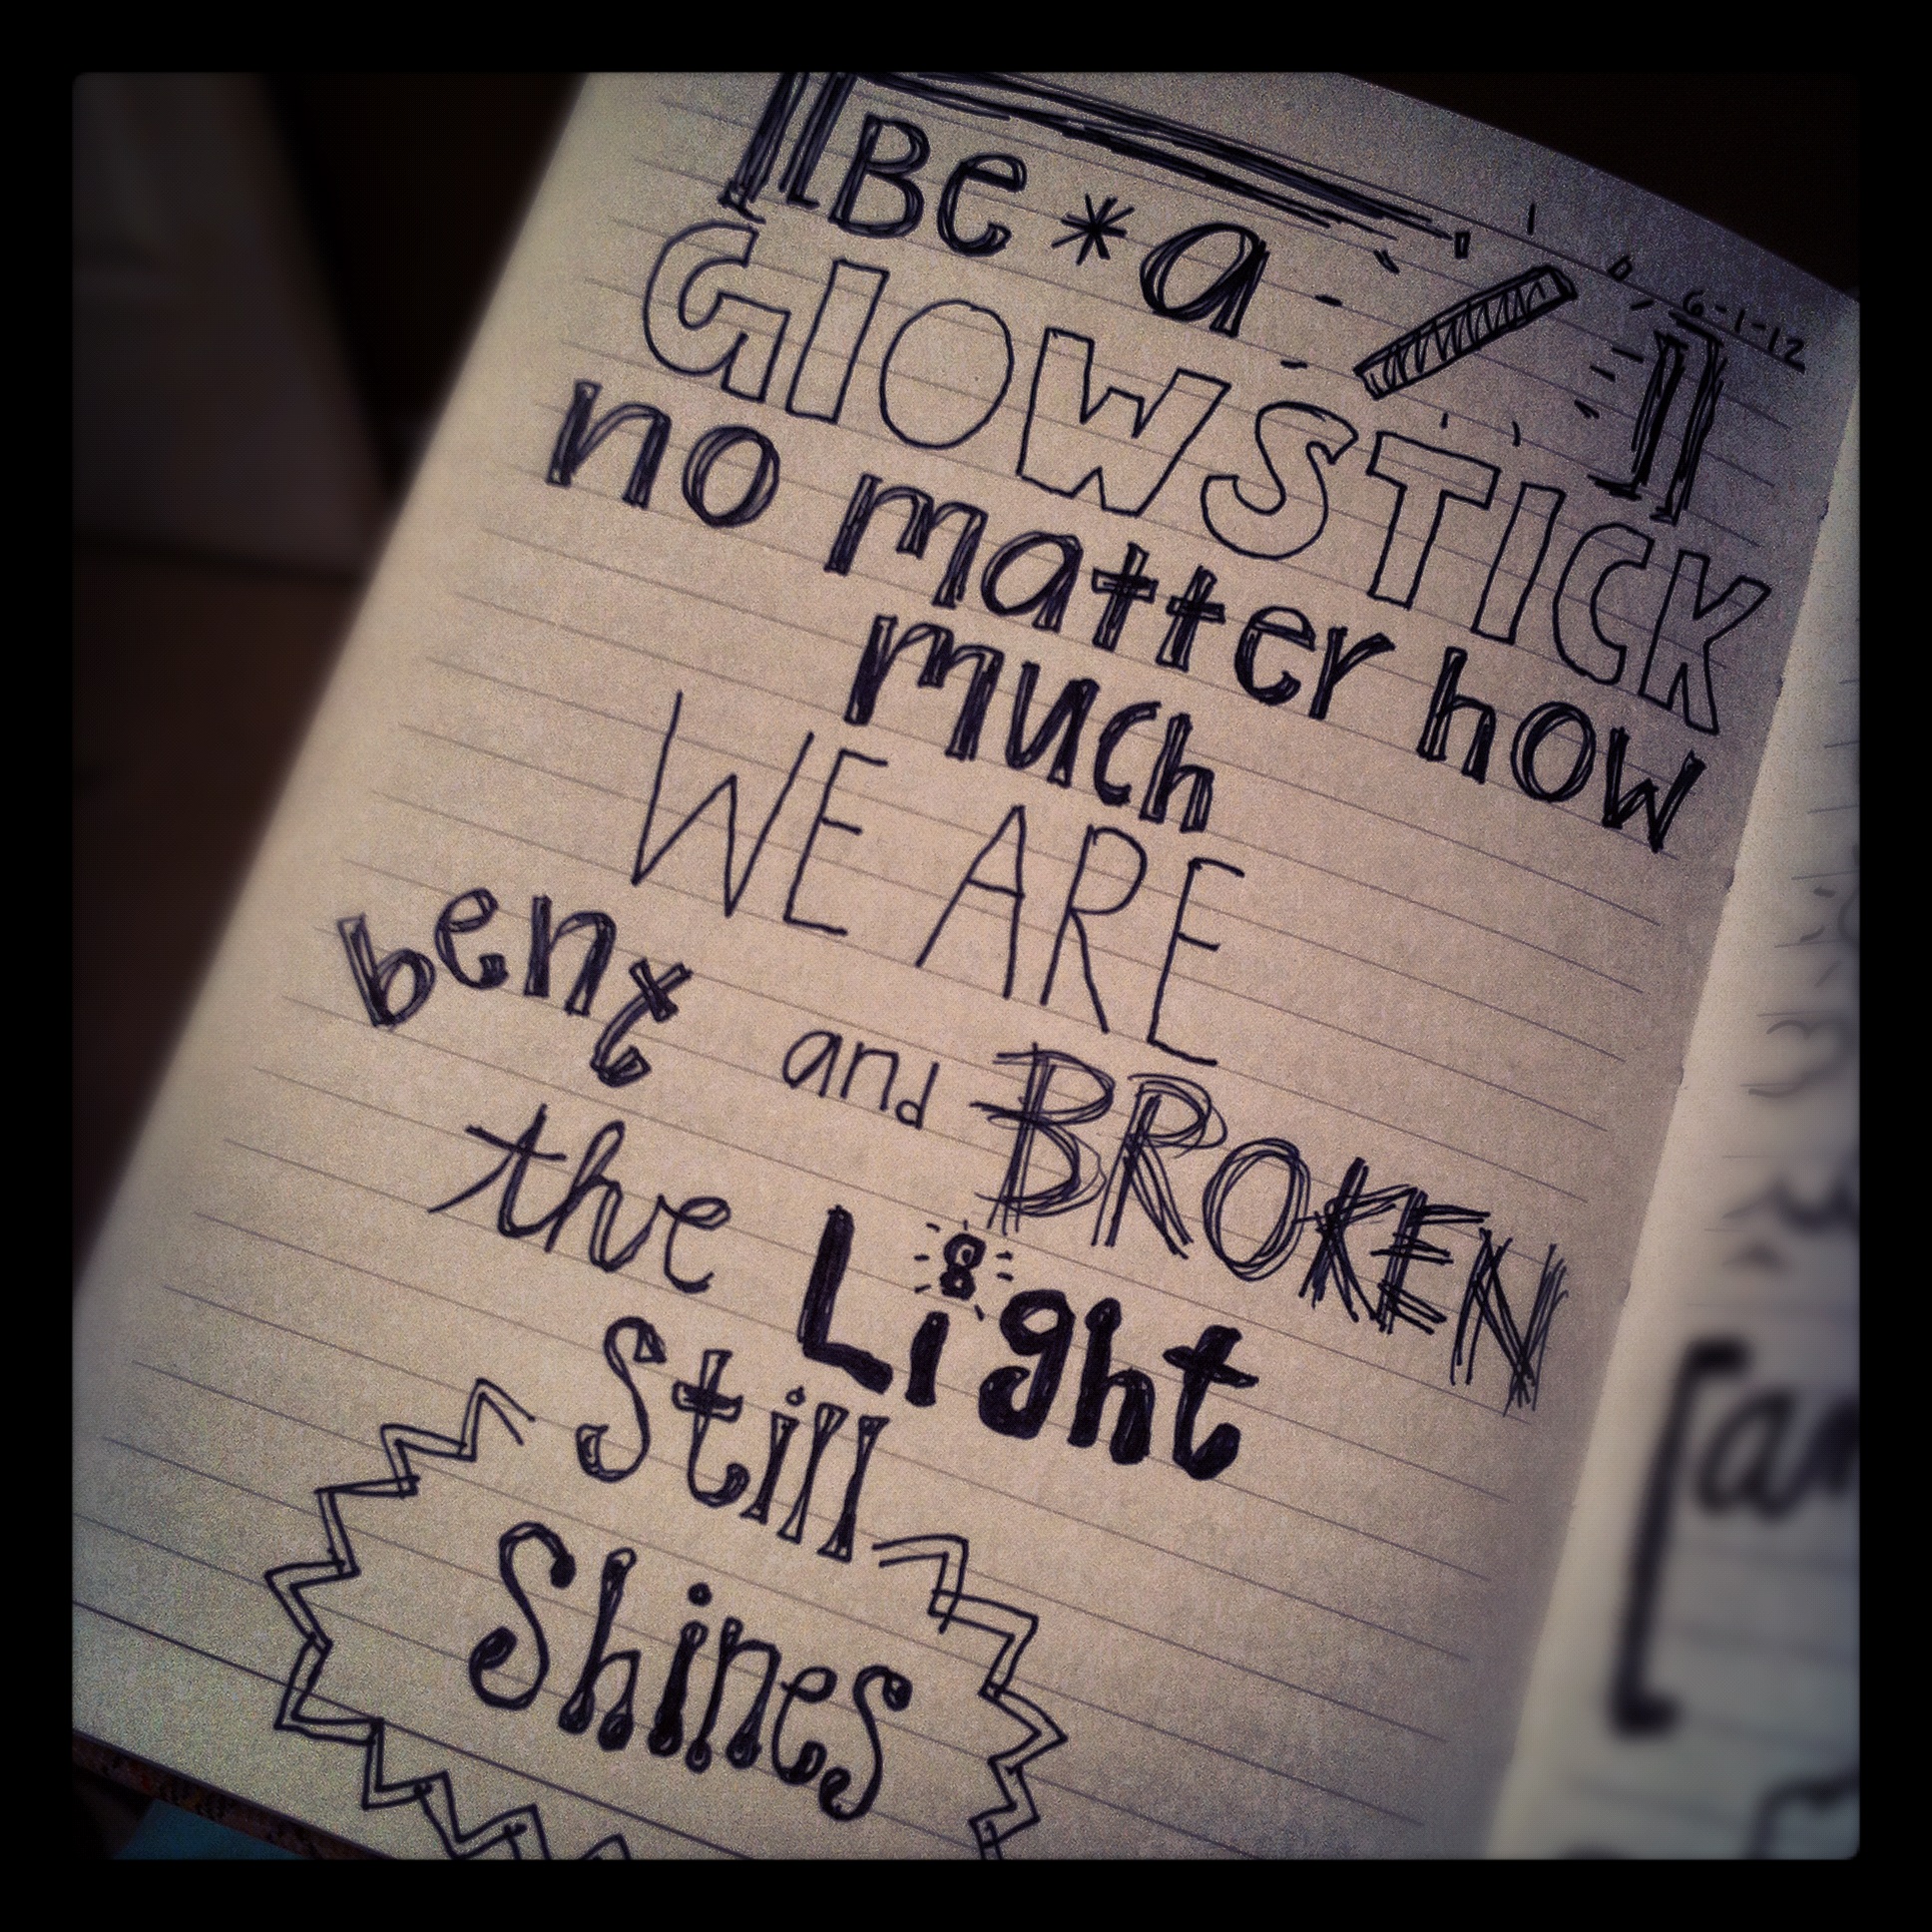 6-1-12
[Be * a ]
GlOWSTICK
no matter how
much
WE ARE
bent and BROKEN
the Light
Still
Shines
[an